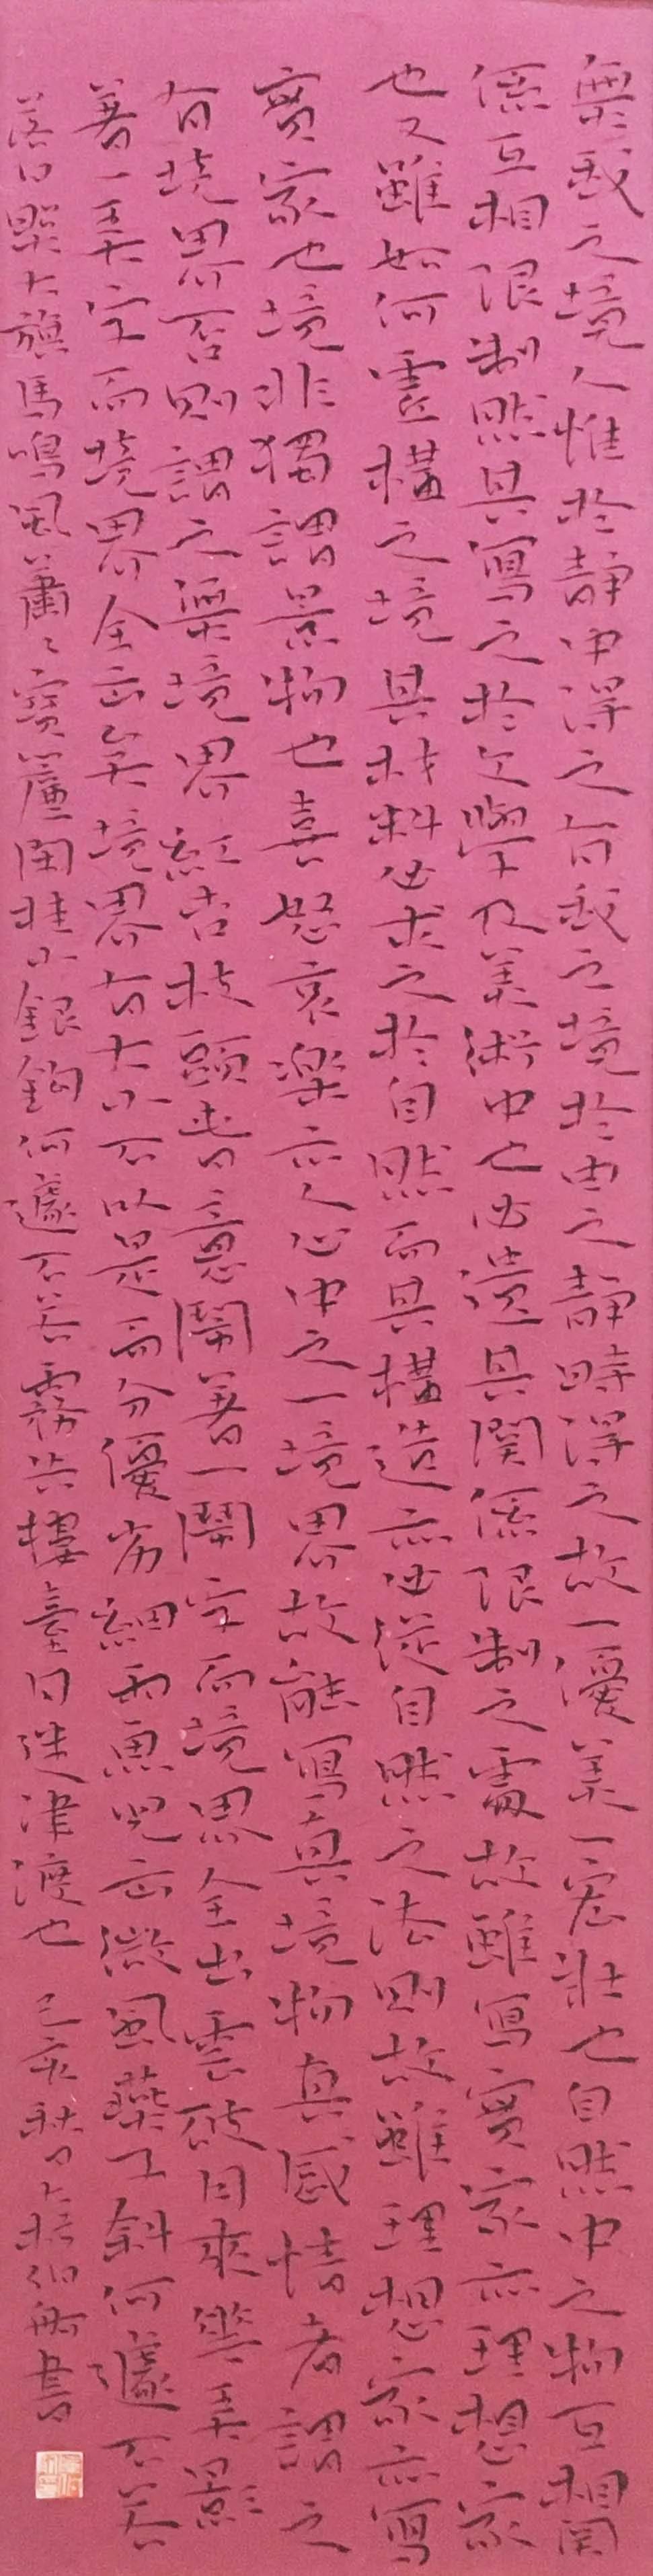 無我之境人惟於靜中得之有我之境於由之靜時得之故一優美一宏壯也自然中之物互相関
係互相限制然其寫之於文學及美術中也必遺其関係限制之處故雖寫實家亦理想家
也又雖如何虛構之境其材料必求之於自然而其構造亦必從自然之法則故雖理想家亦寫
實家也境非獨謂景物也喜怒哀樂亦人心中之一境界故能寫真境物真感情者謂之
有境界否則謂之無境界紅杏枝頭春意鬧著一鬧字而境界全出雲破月來花弄影
著一弄字而境界全出矣境界有大小不以是而分優劣細雨魚兒出微風燕子斜何遽不若
落日照大旗馬鳴風蕭々寶簾閑掛小銀鉤何遽不若霧失樓臺月迷津渡也 己亥秋月書